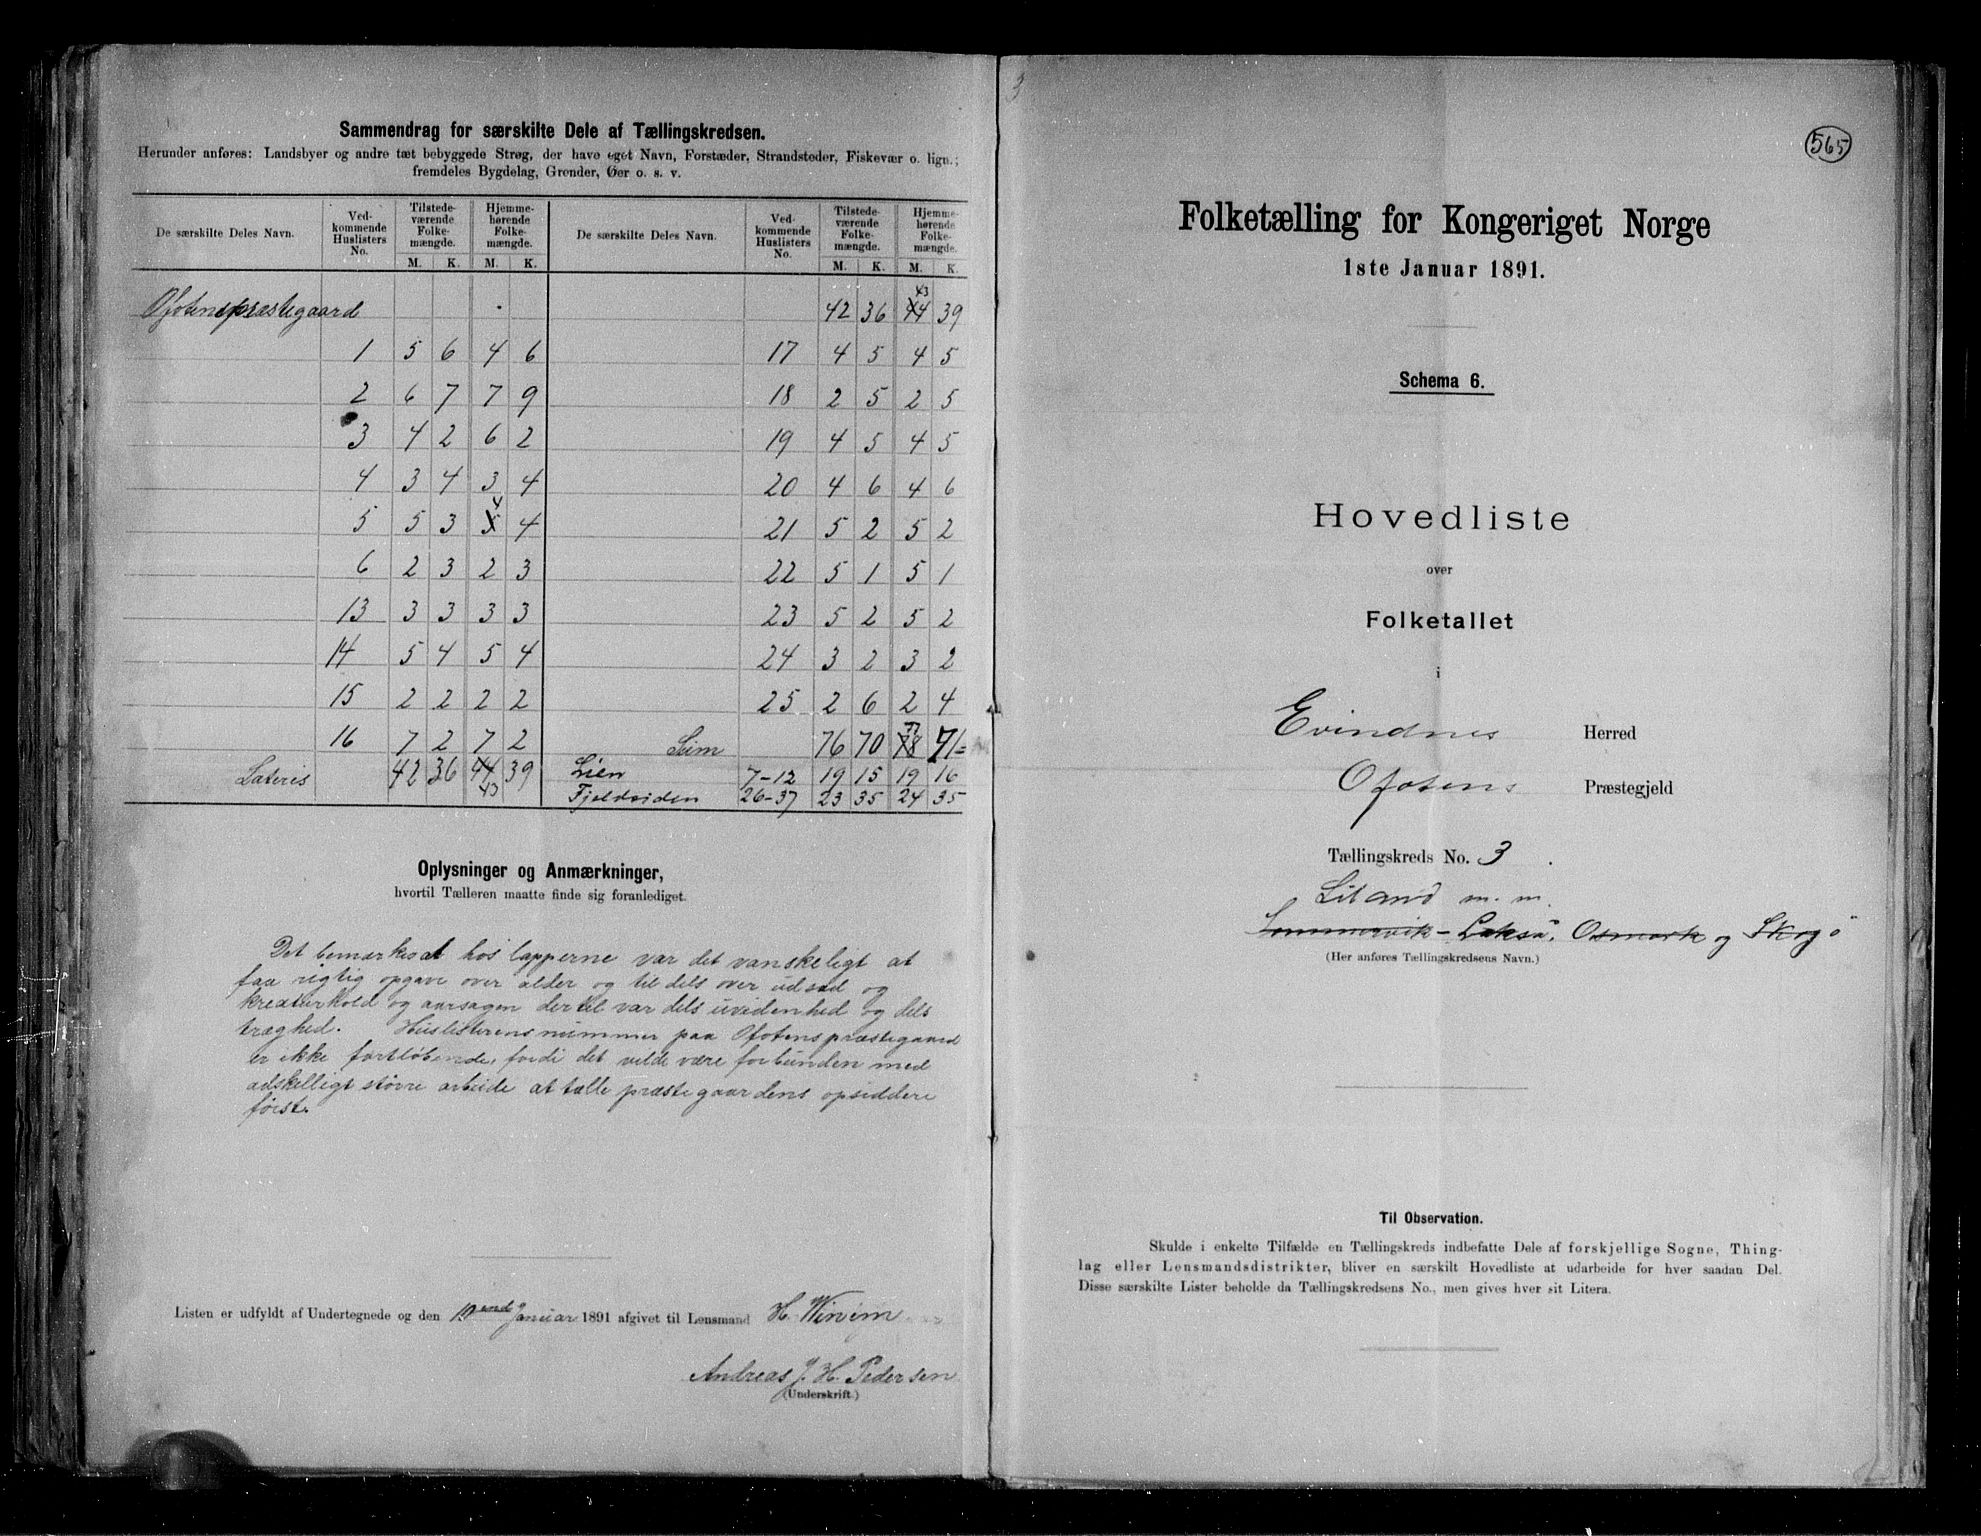 Sammendrag for særskilte Dele af Tællingskredsen.
Herunder anføres: Landsbyer og andre tæt bebyggede Strøg, der have eget Navn, Forstæder, Strandsteder, Fiskevær o. lign.;
fremdeles Bygdelag, Grender, Øer o. s. v.
De særskilte Deles Navn. Vedkommende Huslisters No. Tilstedeværende Folkemængde. M. K. Hjemmehørende Folkemængde. M. K. De særskilte Deles Navn. Vedkommende Huslisters No. Tilstedeværende Folkemængde. M. K. Hjemmehørende Folkemængde. M. K.
Ofotens præstegaard 42 36 44 43 39
1 5 6 4 6 17 4 5 4 5
2 6 7 7 9 18 2 5 2 5
3 4 2 6 2 19 4 5 4 5
4 3 4 3 4 20 4 6 4 6
5 5 3 5 4 4 21 5 2 5 2
6 2 3 2 3 22 5 1 5 1
13 3 3 3 3 23 5 2 5 2
14 5 4 5 4 24 3 2 3 2
15 2 2 2 2 25 2 6 2 4
16 7 2 7 2 Sum 76 70 78 77 71=
Lateris 42 36 44 43 39 Lien 7-12 19 15 19 16
Fjeldsiden 26-37 23 35 24 35
Oplysninger og Anmærkninger,
hvortil Tælleren maatte finde sig foranlediget.
Det bemærkes at hos lapperne var det vanskeligt at
faa rigtig opgave over alder og til dels over udsæd og
kreaturhold og aarsagen dertil var dels uvidenhed og dels
træghed. Huslisterens nummer paa Ofotens præstegaard
er ikke fortløbende, fordi det vilde være forbunden med
adskilligt større arbeide at tælle præstegaardens opsiddere
først.
Listen er udfyldt af Undertegnede og den Januar 1891 afgivet til Lensmand H.
Andreas J. H. Pedersen
(Underskrift.)
3
565
Folketælling for Kongeriget Norge
1ste Januar 1891.
Schema 6.
Hovedliste
over
Folketallet
i
Evindnes Herred
Ofotens Præstegjeld
Tællingskreds No. 3.
Liland m. m.
Sommervik - Lakså, Osmark og Skogö
(Her anføres Tællingskredsens Navn.)
Til Observation.
Skulde i enkelte Tilfælde en Tællingskreds indbefatte Dele af forskjellige Sogne, Thing-
lag eller Lensmandsdistrikter, bliver en særskilt Hovedliste at udarbeide for hver saadan Del.
Disse særskilte Lister beholde da Tællingskredsens No., men gives hver sit Litera.